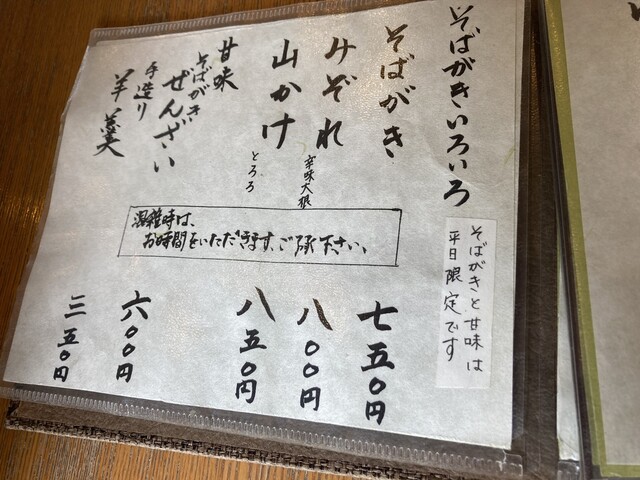 そばがきいろいろ
そばがきと甘味は
平日限定です
そばがき 七五〇円
みぞれ 辛味大根 八〇〇円
山かけ とろろ 八五〇円
甘味
そばがき
ぜんざい 六〇〇円
手造り
羊羹 三五〇円
混雑時は、
お時間をいただきます、ご承下さい、